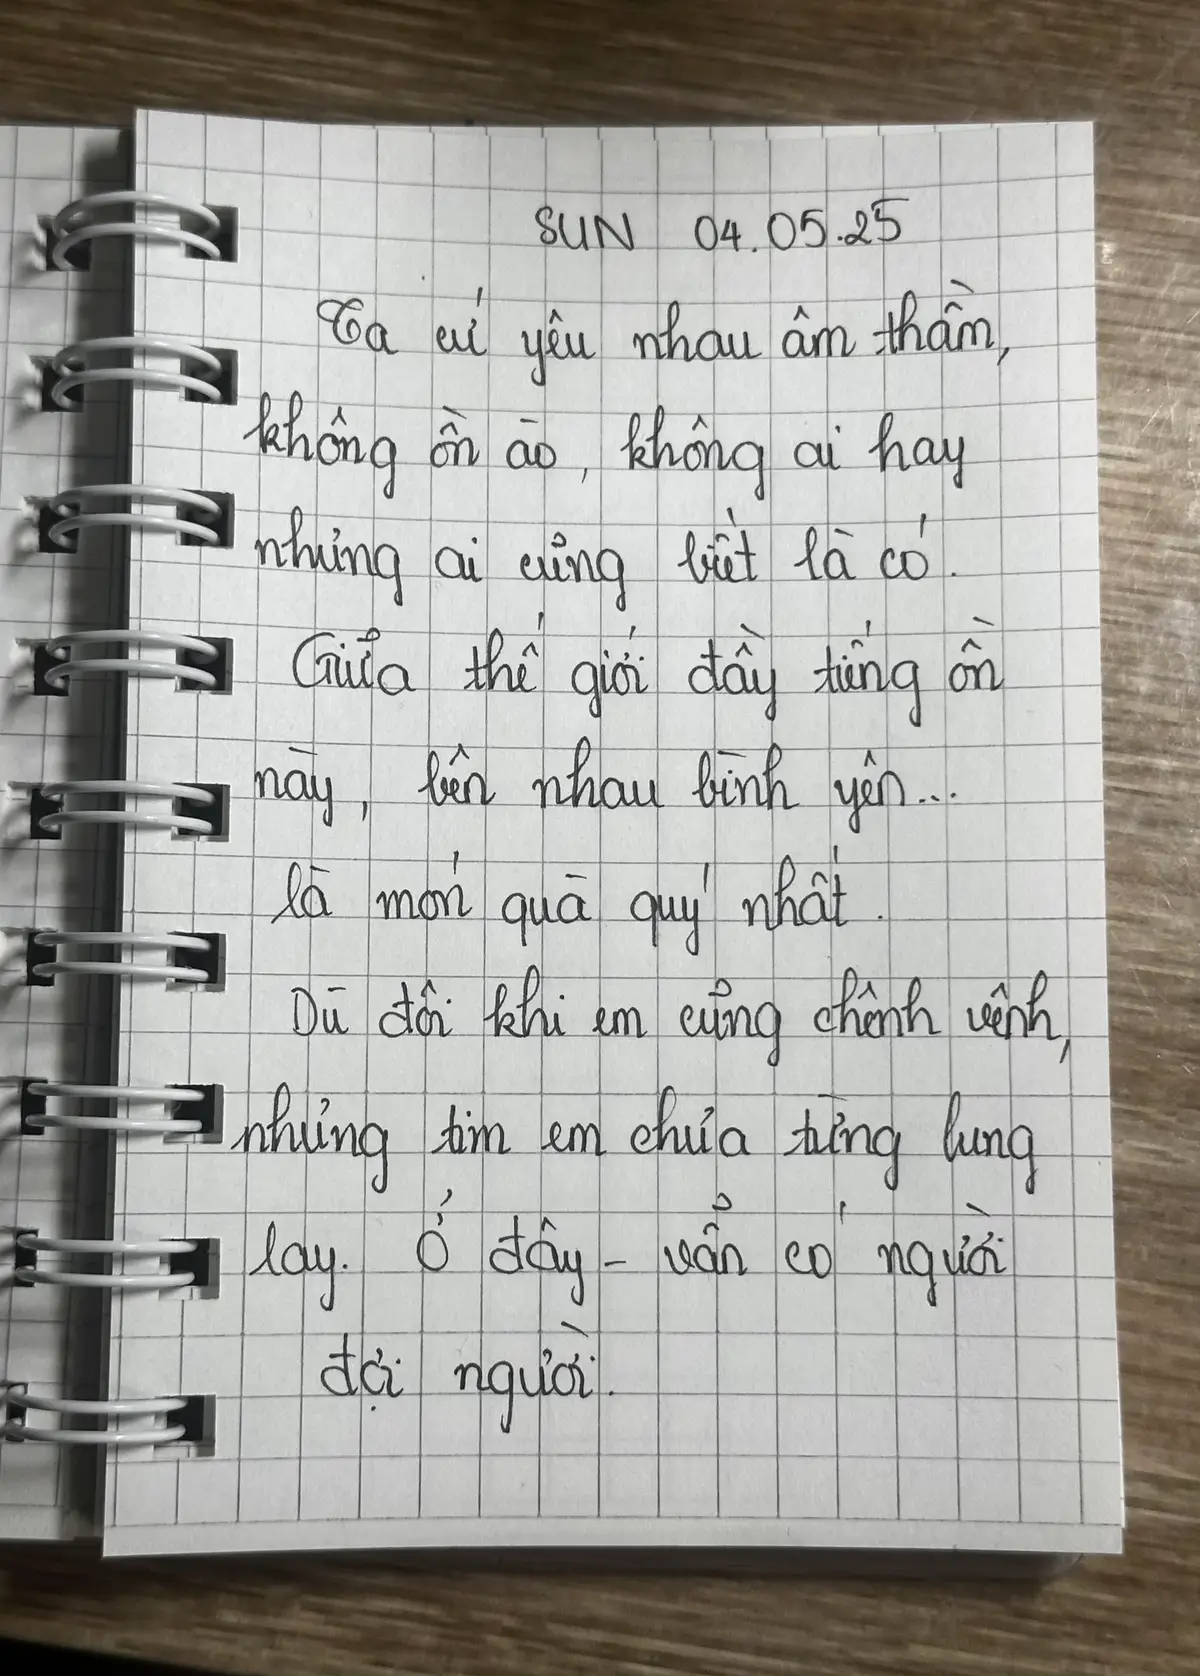 SUN 04.05.25
Ta cứ yêu nhau âm thầm,
không ồn ào, không ai hay
nhưng ai cũng biết là có.
Giữa thế giới đầy tiếng ồn
này, bên nhau bình yên...
là món quà quý nhất.
Dù đôi khi em cũng chênh vênh,
nhưng tim em chưa từng lung
lay. Ở đây - vẫn có người
đợi người.